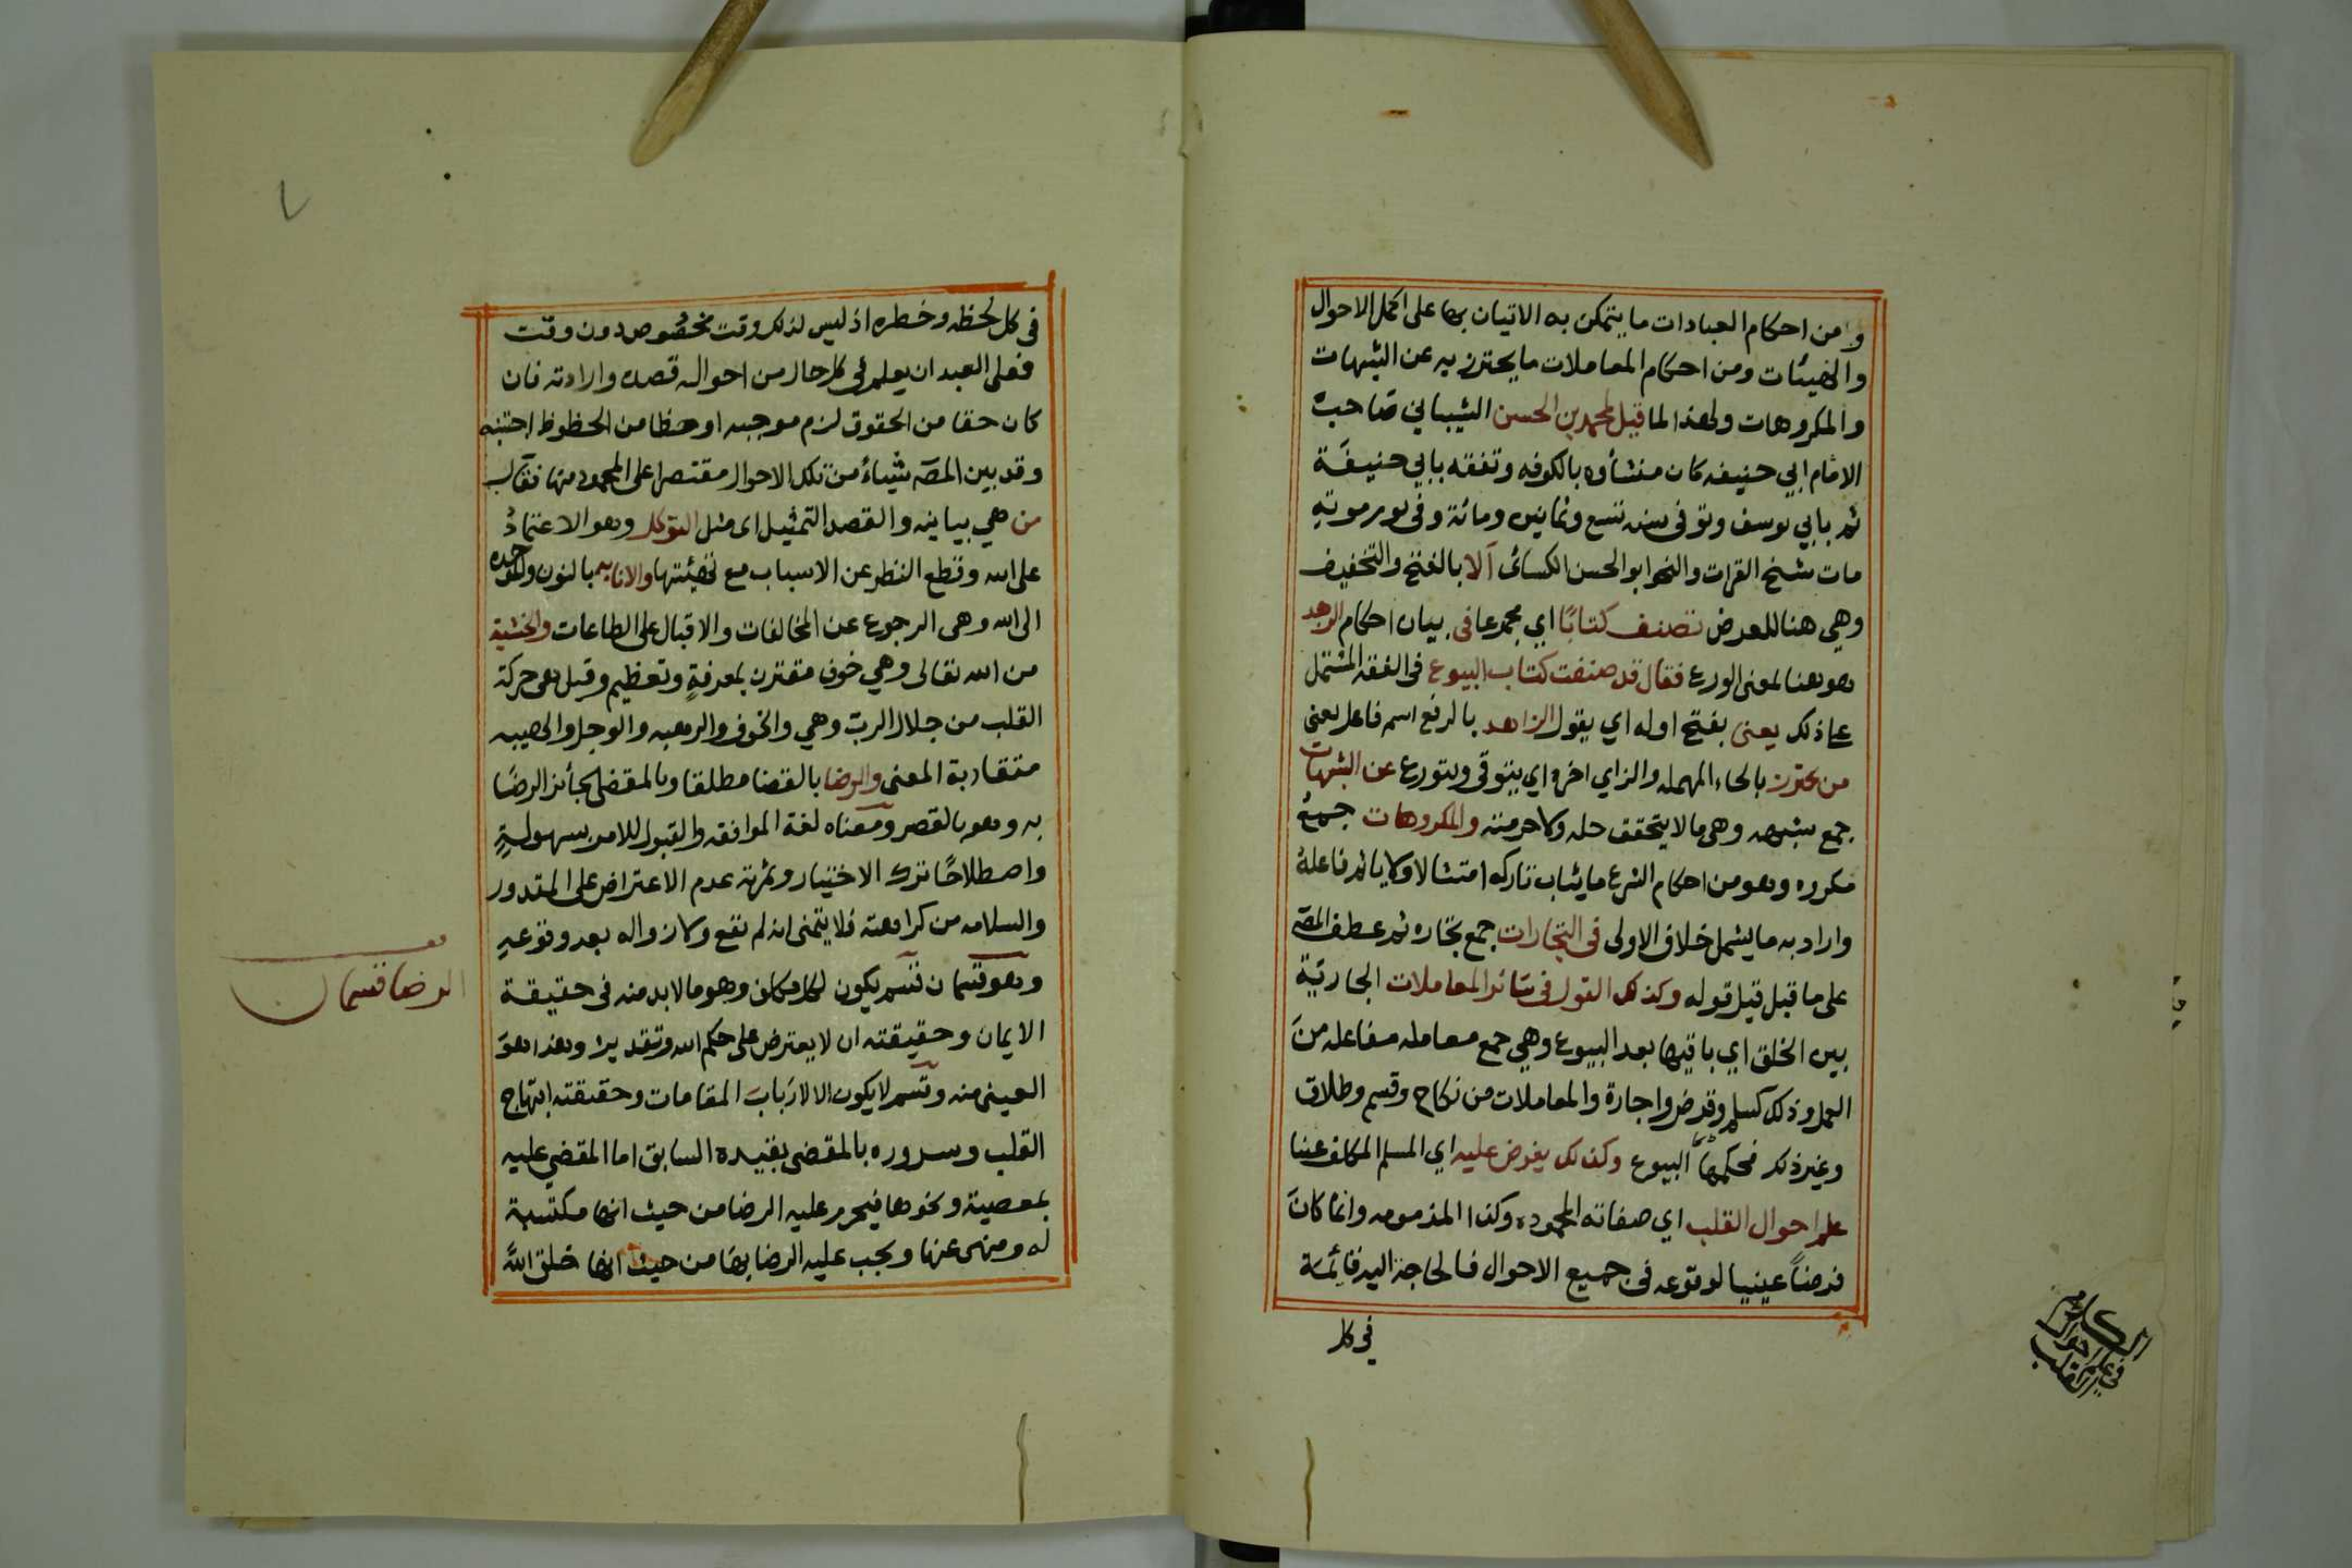 و من احكام العبادات ما يتمكن به الاتيان بها على اكمل الاحوال
والهيئات ومن احكام المعاملات ما يحترز به عن الشبهات
والمكروهات ولهذا لما قيل لمحمد بن الحسن الشيباني صاحب
الامام ابي حنيفه كان منشأوه بالكوفه وتفقه بابي حنيفة
ثم بابي يوسف وتوفى سنه تسع وثمانين ومائة وفى يوم موته
مات شيخ القرات والنحو ابو الحسن الكسائى ألا بالفتح والتخفيف
وهي هنا للعرض تصنف كتابًا اي مجموعا فى بيان احكام الزهد
وهو هنا لمعنى الورع فقال قد صنفت كتاب البيوع فى الفقه المشتمل
على ذلك يعنى بفتح اوله اي يقول الزاهد بالرفع اسم فاعل يعنى
من يحترز بالحاء المهمله والزاي اخره اي يتوقى ويتورع عن الشبهات
جمع شبهه وهى ما لا يتحقق حله ولا حرمته والمكروهات جمع
مكروه وهو من احكام الشرع ما يثاب تاركه امتثالا ولا ياثم فاعله
واراد به ما يشمل خلاف الاولى فى التجارات جمع تجاره ثم عطف المص
على ما قبل قيل قوله وكذلك القول فى سائر المعاملات الجارية
بين الخلق اي باقيها بعد البيوع وهي جمع معامله مفاعله من
العمل وذلك كسلم وقرض واجارة والمعاملات من نكاح وقسم وطلاق
وغير ذلك فحكمها البيوع وكذلك يفرض عليه اي المسلم المكلف عينا
علم احوال القلب اي صفاته المحموده وكذا المذمومه وانما كان
فرضاً عينيا لوقوعه فى جميع الاحوال فالحاجة اليه قائمة
في كل
الكلام
في علم احوال
القلب
٧
فى كل لحظه وخطره اذ ليس لذلك وقت مخصوص دون وقت
فعلى العبد ان يعلم في كل حال من احواله قصده وارادته فان
كان حقا من الحقوق لزم موجبه او حظا من الحظوظ اجتنبه
وقد بين المصّ شيئاً من تلك الاحوال مقتصرا على المحمود منها فقال
من هي بيانيه والقصد التمثيل اى مثل التوكل وهو الاعتماد
على الله وقطع النظر عن الاسباب مع تهيئتها والانابه بالنون
الى الله وهى الرجوع عن المخالفات والاقبال على الطاعات والخشية
من الله تعالى وهي خوف مقترن بمعرفةٍ وتعظيم وقيل هى حركة
القلب من جلال الرب وهي والخوف والرهبه والوجل والهيبه
متقاربة المعنى والرضا بالقضا مطلقا وبالمقضى لجائز الرضا
به وهو بالقصر ومعناه لغة الموافقه والقبول للامر بسهولةٍ
واصطلاحًا ترك الاختيار وثمرته عدم الاعتراض على المقدور
والسلامه من كراهته فلا يتمنى انه لم يقع ولا زواله بعد وقوعه
وهو قسمان قسم يكون لكل مكلف وهو ما لا بد منه فى حقيقة
الايمان وحقيقته ان لا يعترض على حكم الله وتقديره وهذا هو
العينى منه وقسم لا يكون الا لارباب المقامات وحقيقته ابتهاج
القلب وسروره بالمقضى بقيده السابق اما المقضي عليه
بمعصية ونحوها فيحرم عليه الرضا من حيث انها مكتسبة
له ومنهى عنها ويجب عليه الرضا بها من حيث انها خلق الله
الرضا قسمان